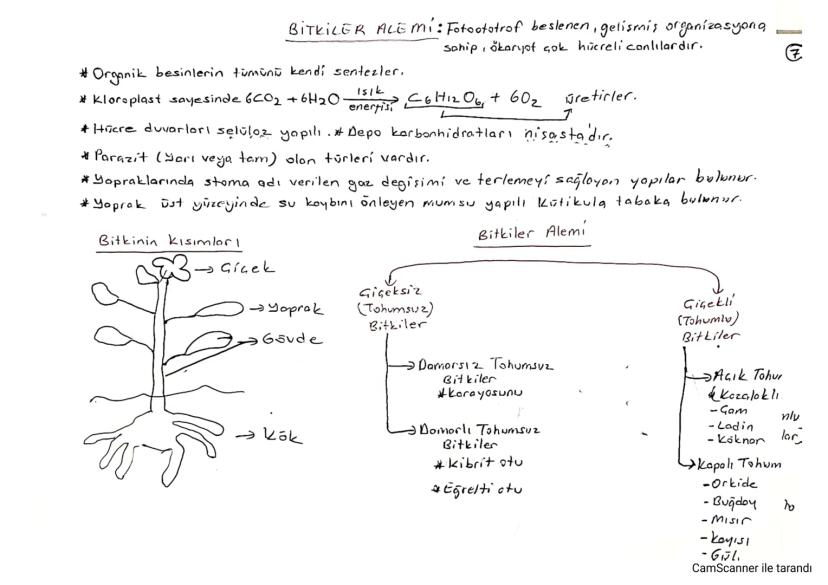 BİTKİLER ALEMİ: Fotoototrof beslenen, gelişmiş organizasyona
sahip, ökaryot çok hücreli canlılardır.
7
* Organik besinlerin tümünü kendi sentezler.
* Kloroplast sayesinde 6CO2 + 6H2O ışık enerjisi → C6H12O6 + 6O2 üretirler.
* Hücre duvarları selüloz yapılı. * Depo karbonhidratları nişasta'dır.
* Parazit (yarı veya tam) olan türleri vardır.
* Yapraklarında stoma adı verilen gaz değişimi ve terlemeyi sağlayan yapılar bulunur.
* Yaprak üst yüzeyinde su kaybını önleyen mumsu yapılı kütikula tabaka bulunur.
Bitkinin Kısımları
→ Çiçek
→ Yaprak
→ Gövde
→ Kök
Bitkiler Alemi
Çiçeksiz
(Tohumsuz)
Bitkiler
→ Damarsız Tohumsuz
Bitkiler
* Karayosunu
→ Damarlı Tohumsuz
Bitkiler
* Kibrit otu
* Eğrelti otu
Çiçekli
(Tohumlu)
Bitkiler
→ Açık Tohum
Kozalaklı
- Çam
- Ladin
- Köknar
nlu
lar
→ Kapalı Tohum
- Orkide
- Buğday
- Mısır
- Kayısı
- Gül
CamScanner ile tarandı